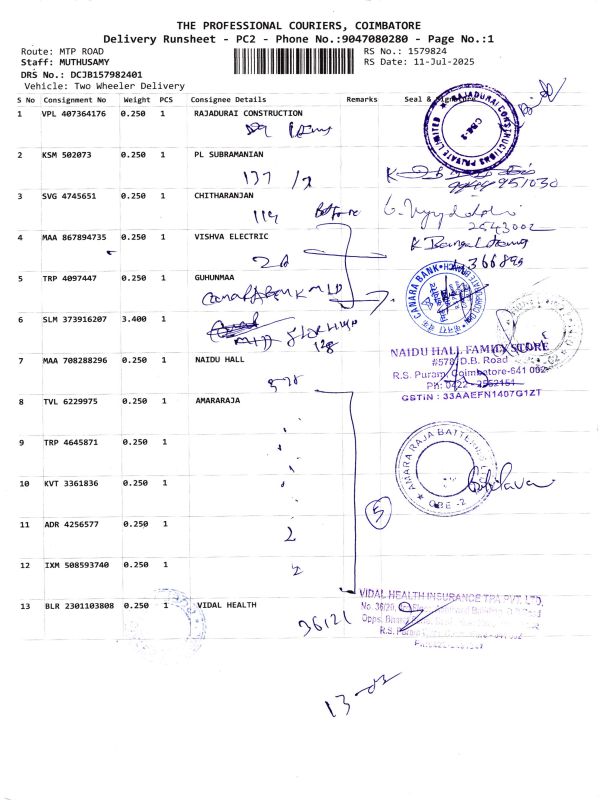 THE PROFESSIONAL COURIERS, COIMBATORE
Delivery Runsheet - PC2 - Phone No.:9047080280 - Page No.:1
Route: MTP ROAD
RS No.: 1579824
Staff: MUTHUSAMY
RS Date: 11-Jul-2025
DRS No.: DCJB157982401
Vehicle: Two Wheeler Delivery
S No Consignment No Weight PCS Consignee Details Remarks Seal & Signature
1 VPL 407364176 0.250 1 RAJADURAI CONSTRUCTION
RAJADURAI CONSTRUCTIONS PRIVATE LIMITED
CBE-2
2 KSM 502073 0.250 1 PL SUBRAMANIAN
137
951030
3 SVG 4745651 0.250 1 CHITHARANJAN
114
2543002
4 MAA 867894735 0.250 1 VISHVA ELECTRIC
366895
5 TRP 4097447 0.250 1 GUHUNMAA
CANARA BANK
6 SLM 373916207 3.400 1
128
7 MAA 708288296 0.250 1 NAIDU HALL
578
NAIDU HALL FAMILY STORE
#578, D.B. Road
R.S. Puram, Coimbatore-641 002
Ph: 0422 - 2552151
GSTIN : 33AAEFN1407G1ZT
8 TVL 6229975 0.250 1 AMARARAJA
9 TRP 4645871 0.250 1
AMARA RAJA BATTERIES
CBE -2
10 KVT 3361836 0.250 1
5
11 ADR 4256577 0.250 1
12 IXM 508593740 0.250 1
13 BLR 2301103808 0.250 1 VIDAL HEALTH
36/21
VIDAL HEALTH INSURANCE TPA PVT. LTD.
No. 36/20,
R.S. Puram
13